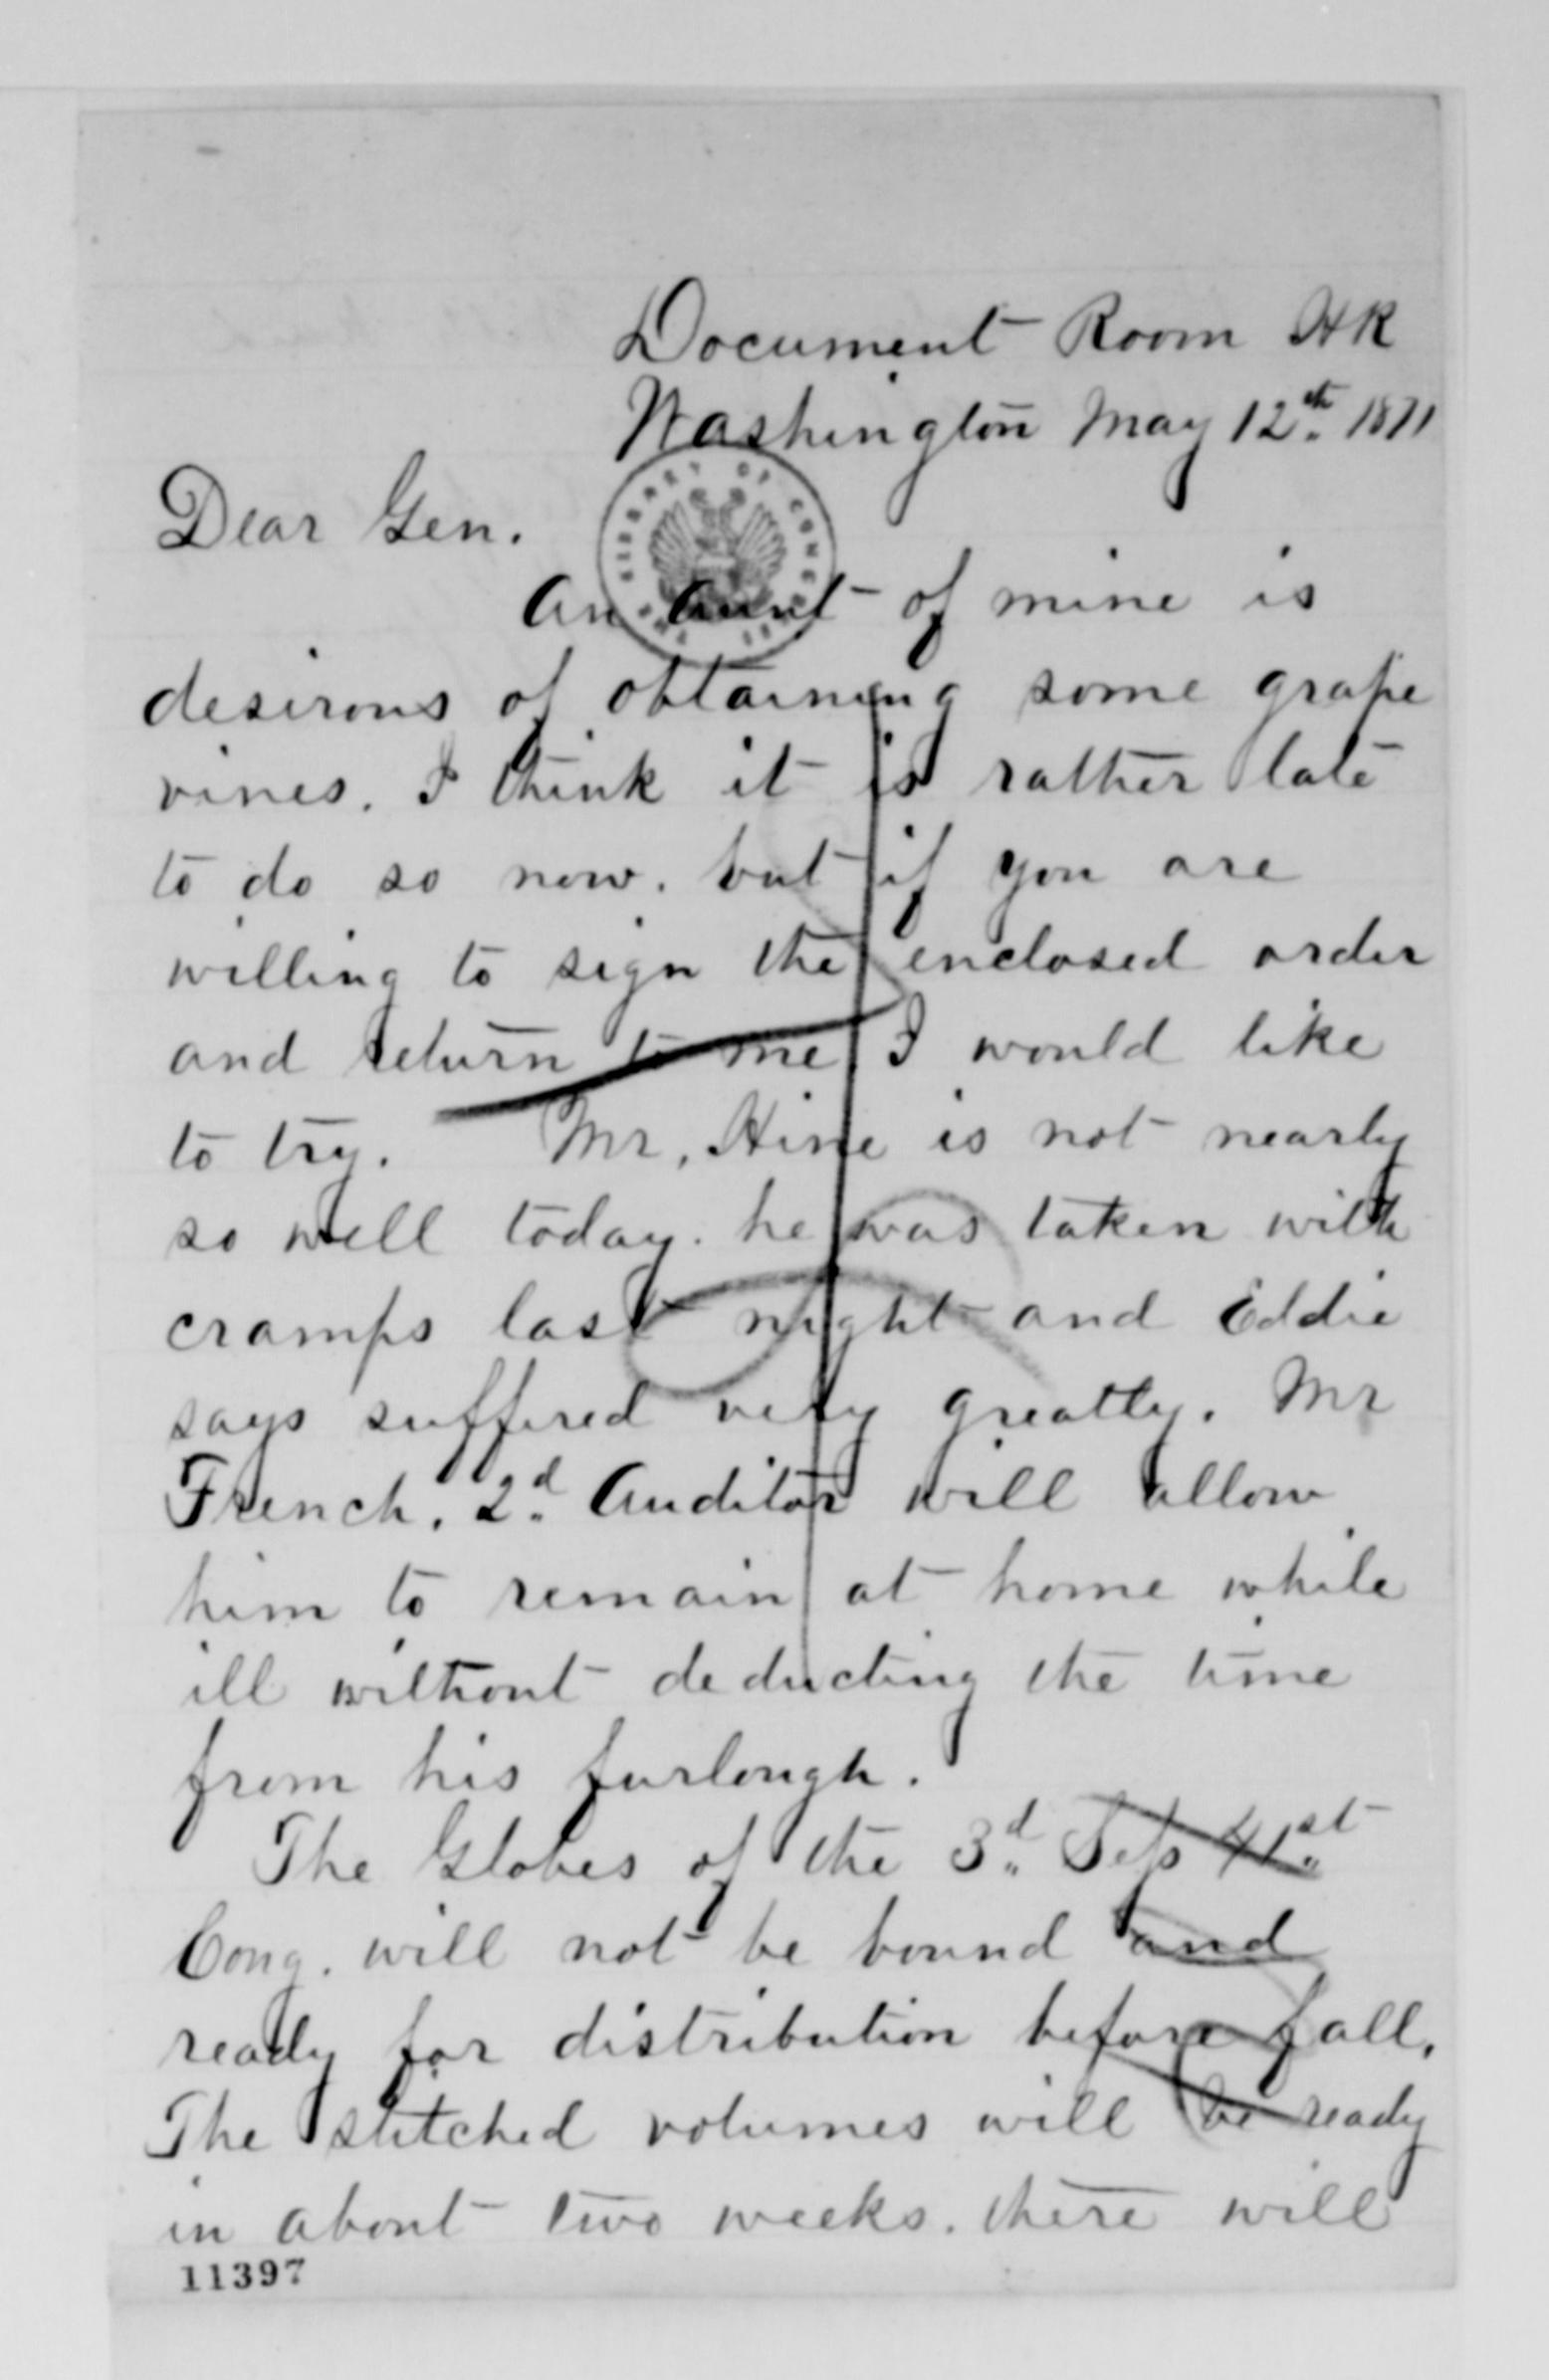 Document Room HR
Washington May 12th. 1871
Dear Gen.
THE LIBRARY OF CONGRESS
An Aunt of mine is
desirous of obtaining some grape
vines. I think it is rather late
to do so now. but if you are
willing to sign the enclosed order
and return to me I would like
to try. Mr. Hine is not nearly
so well today. he was taken with
cramps last night and Eddie
says suffered very greatly. Mr
French. 2d. Auditor will allow
him to remain at home while
ill without deducting the time
from his furlough.
The Globes of the 3d. Sess 41st.
Cong. will not be bound and
ready for distribution before fall.
The stitched volumes will be ready
in about two weeks. there will
11397